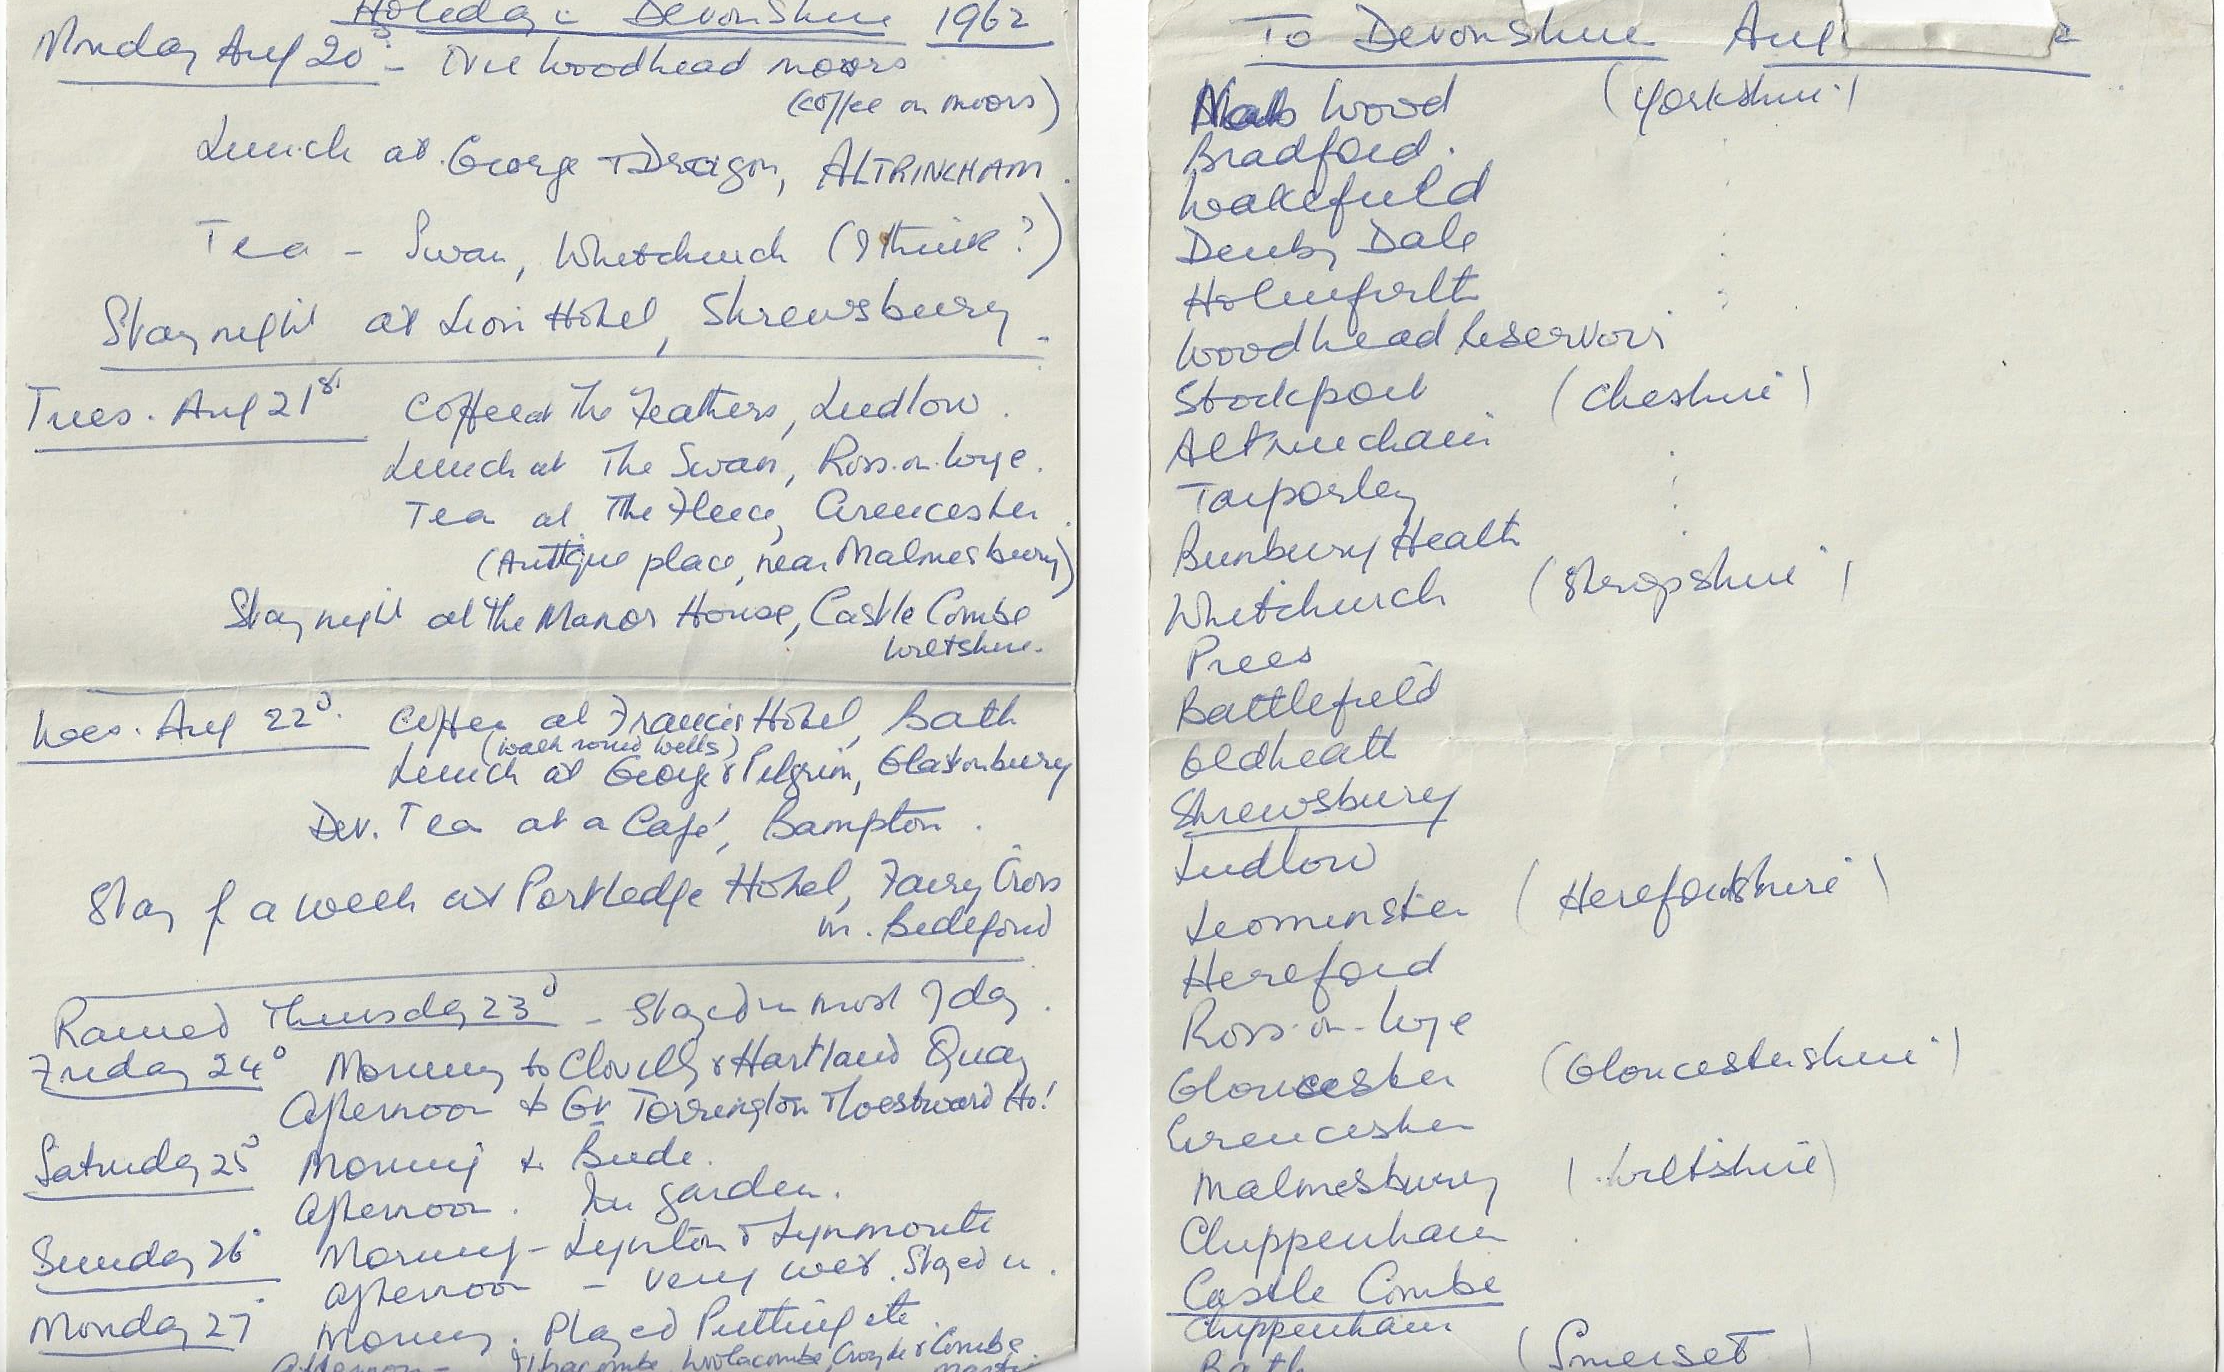 Holiday in Devonshire 1962
Monday Aug 20 - Over Woodhead moors
(coffee on moors)
Lunch at George & Dragon, ALTRINCHAM.
Tea - Swan, Whitchurch (I think?)
Stay night at Lion Hotel, Shrewsbury.
Tues. Aug 21st Coffee at The Feathers, Ludlow.
Lunch at The Swan, Ross-on-Wye.
Tea at The Fleece, Cirencester.
(Antique place, near Malmesbury)
Stay night at the Manor House, Castle Combe
Wiltshire.
Wed. Aug 22d. Coffee at Francis Hotel, Bath
(walk round Wells)
Lunch at George & Pilgrim, Glastonbury
Dev. Tea at a Café, Bampton.
Stay f a week at Portledge Hotel, Fairy Cross
nr. Bideford
Rained Thursday 23d - Stayed in most of day.
Friday 24 Morning to Clovelly & Hartland Quay
Afternoon to Gt Torrington & Westward Ho!
Saturday 25 Morning to Bude.
Afternoon. In garden.
Sunday 26 Morning - Lynton & Lynmouth
Afternoon - very wet. Stayed in.
Monday 27 Morning. Played Putting etc.
Afternoon - Ilfracombe, Woolacombe, Croyde & Combe
Martin
To Devonshire Aug 2
Nab Wood (Yorkshire)
Bradford.
Wakefield
Denby Dale
Holmfirth
Woodhead Reservoir
Stockport (Cheshire)
Altrincham
Tarporley
Bunbury Heath
Whitchurch (Shropshire)
Prees
Battlefield
Oldheath
Shrewsbury
Ludlow
Leominster (Herefordshire)
Hereford
Ross-on-Wye
Gloucester (Gloucestershire)
Cirencester
Malmesbury (Wiltshire)
Chippenham
Castle Combe
Chippenham
Bath (Somerset)